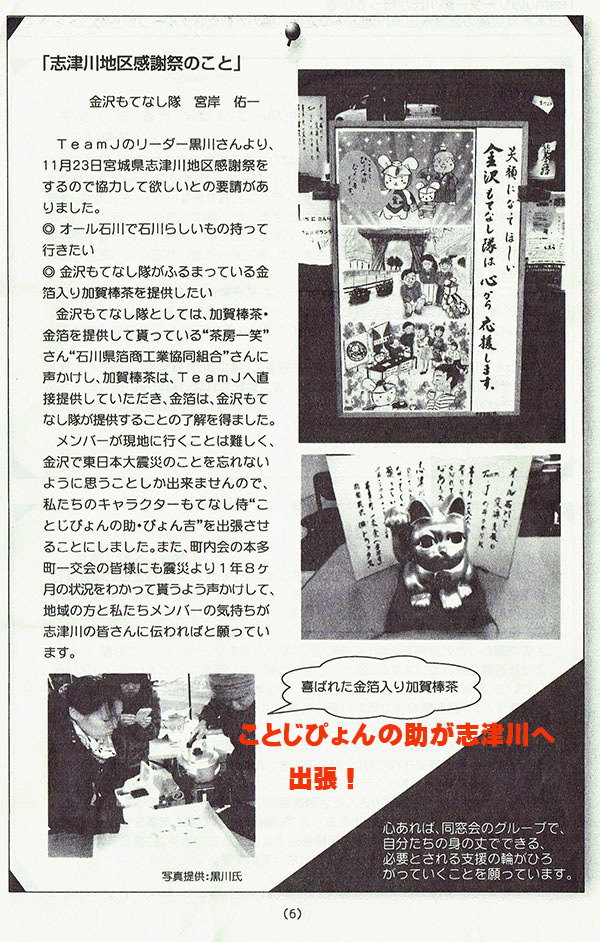 「志津川地区感謝祭のこと」
金沢もてなし隊　宮岸　佑一
ＴｅａｍＪのリーダー黒川さんより、
11月23日宮城県志津川地区感謝祭を
するので協力して欲しいとの要請があ
りました。
◎ オール石川で石川らしいもの持って
行きたい
◎ 金沢もてなし隊がふるまっている金
箔入り加賀棒茶を提供したい
金沢もてなし隊としては、加賀棒茶・
金箔を提供して貰っている“茶房一笑”
さん“石川県箔商工業協同組合”さんに
声かけし、加賀棒茶は、ＴｅａｍＪへ直
接提供していただき、金箔は、金沢もて
なし隊が提供することの了解を得ました。
メンバーが現地に行くことは難しく、
金沢で東日本大震災のことを忘れない
ように思うことしか出来ませんので、
私たちのキャラクターもてなし侍“こ
とじぴょんの助・ぴょん吉”を出張させ
ることにしました。また、町内会の本多
町一交会の皆様にも震災より１年８ヶ
月の状況をわかって貰うよう声かけして、
地域の方と私たちメンバーの気持ちが
志津川の皆さんに伝わればと願ってい
ます。
笑顔になてほしい
金沢もてなし隊は心から応援します。
オール石川で
喜ばれた金箔入り加賀棒茶
ことじぴょんの助が志津川へ
出張！
写真提供：黒川氏
心あれば、同窓会のグループで、
自分たちの身の丈でできる、
必要とされる支援の輪がひろ
がっていくことを願っています。
（6）